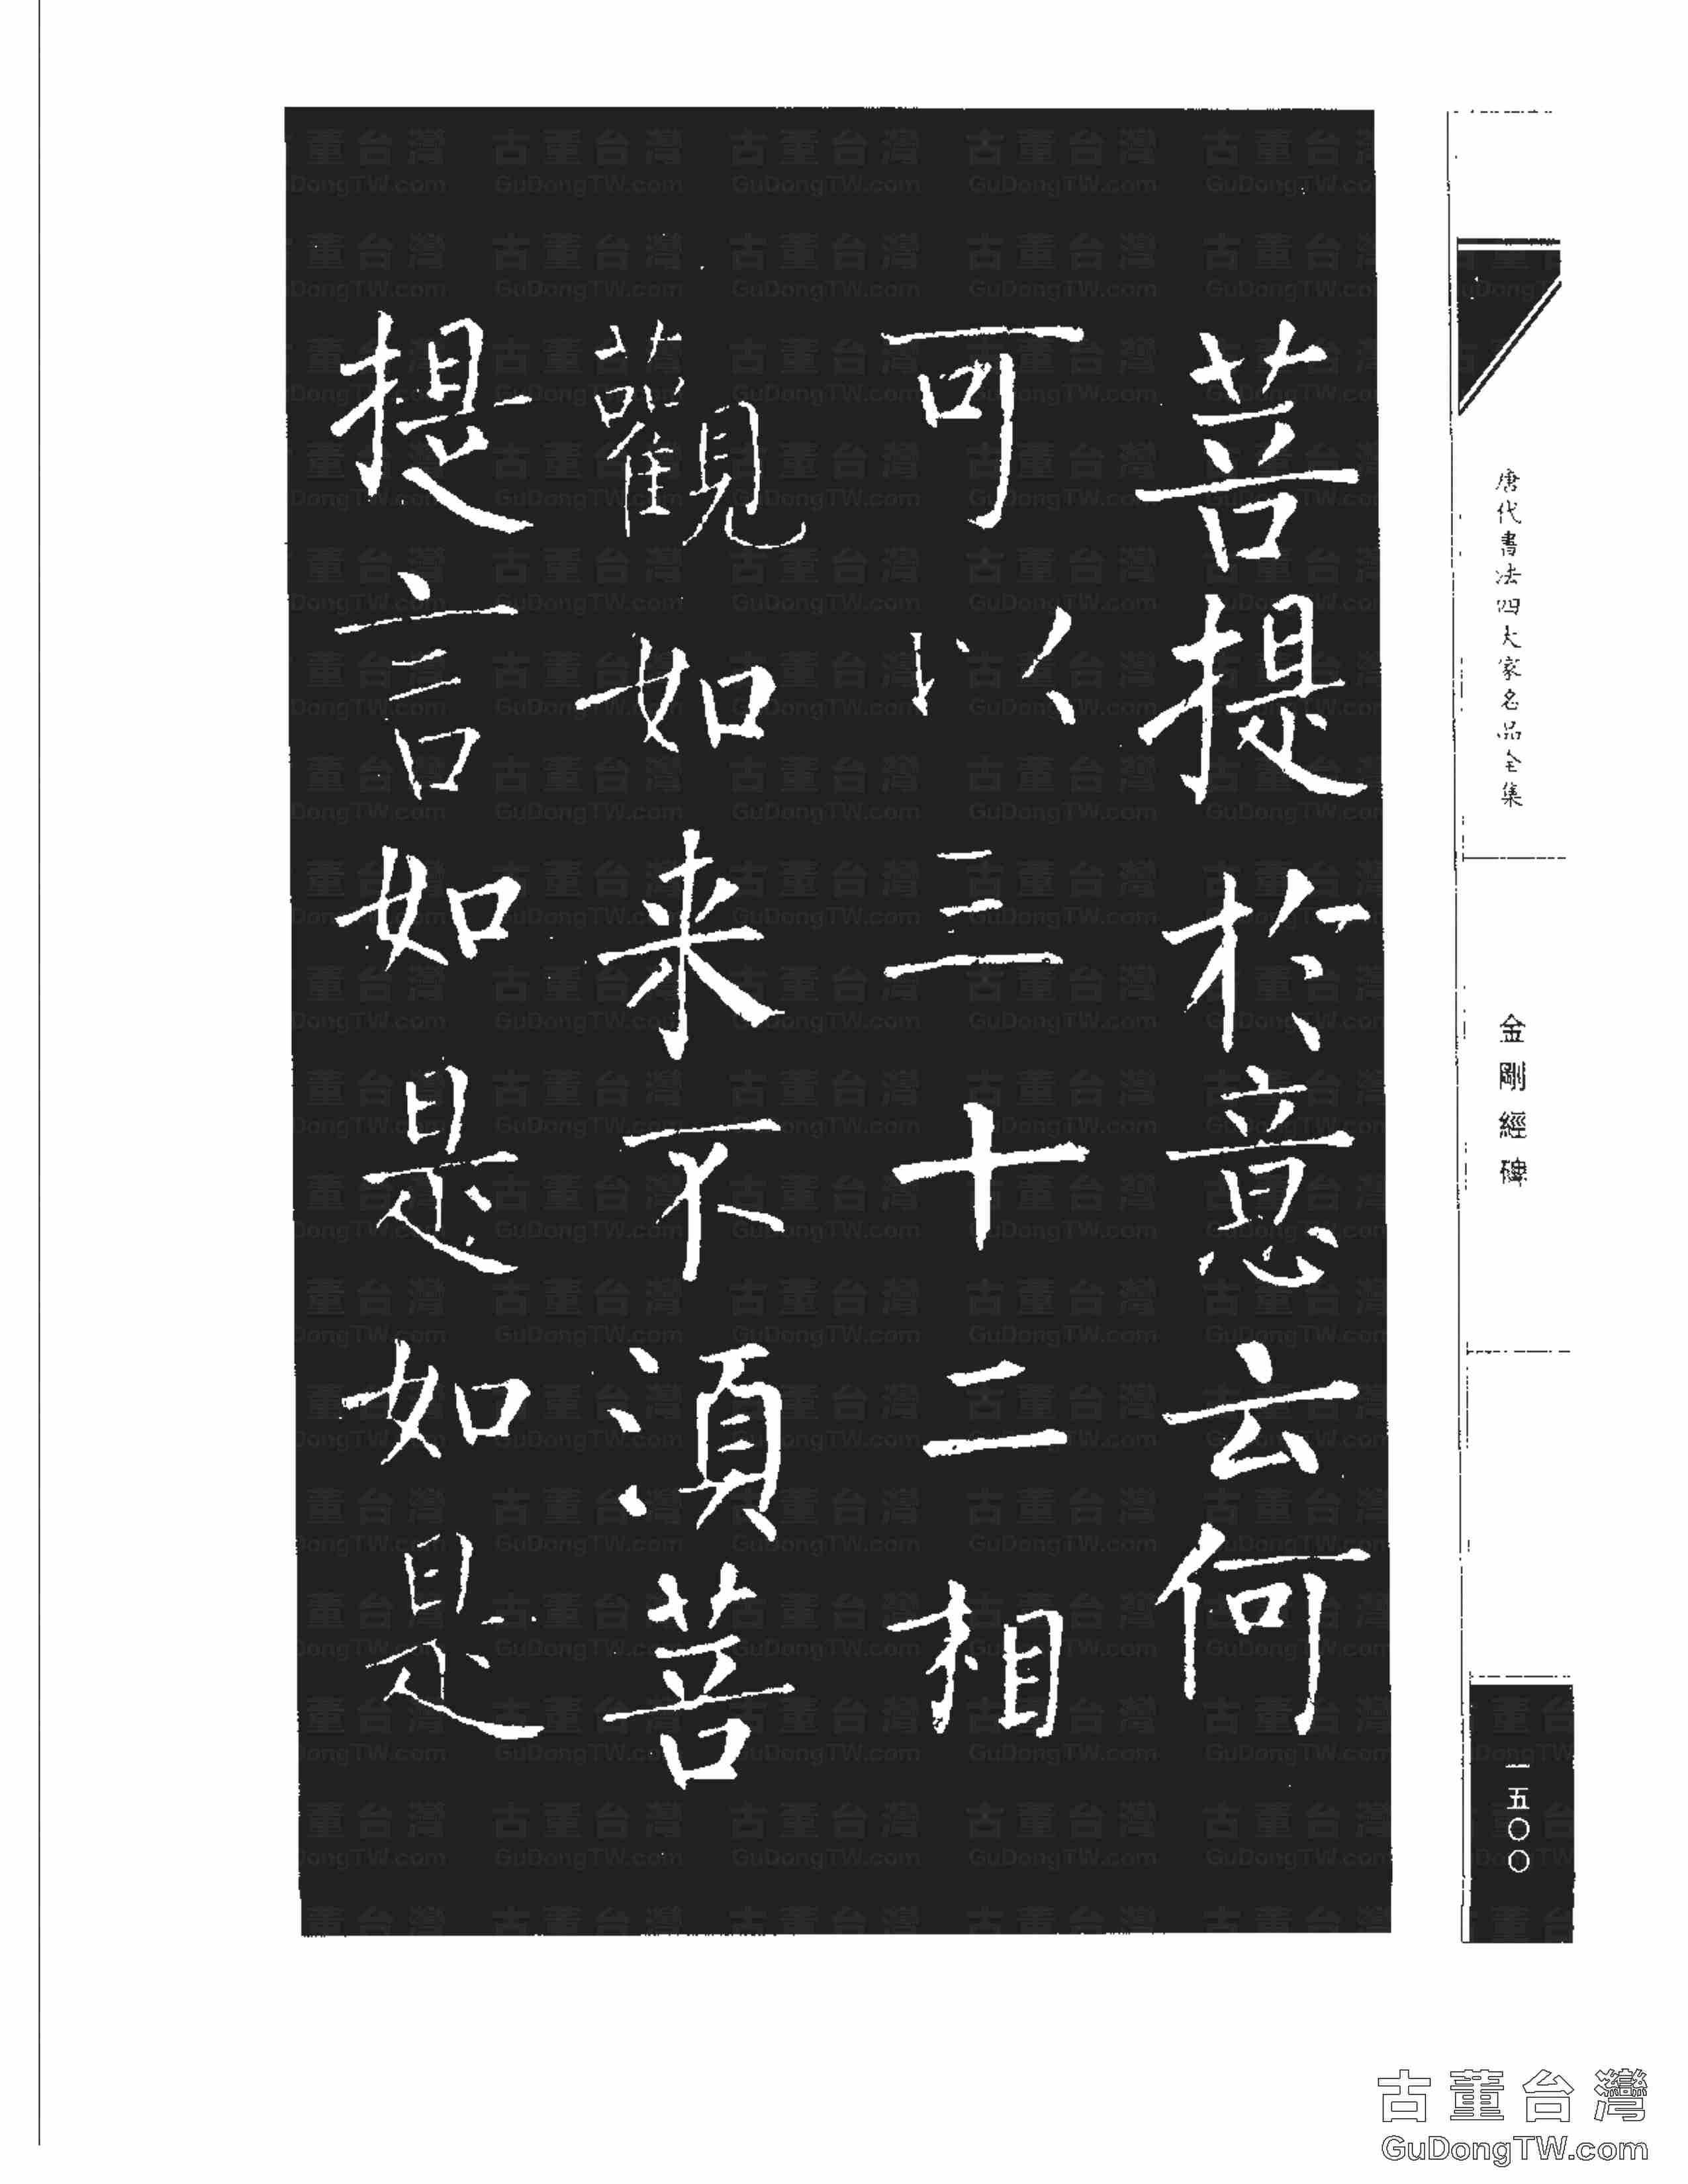 菩提於意云何
可以三十二相
觀如来不湏菩
提言如是如是
唐代書法四大家名品全集
金剛經碑
一五〇〇
古董台灣
GuDongTW.com